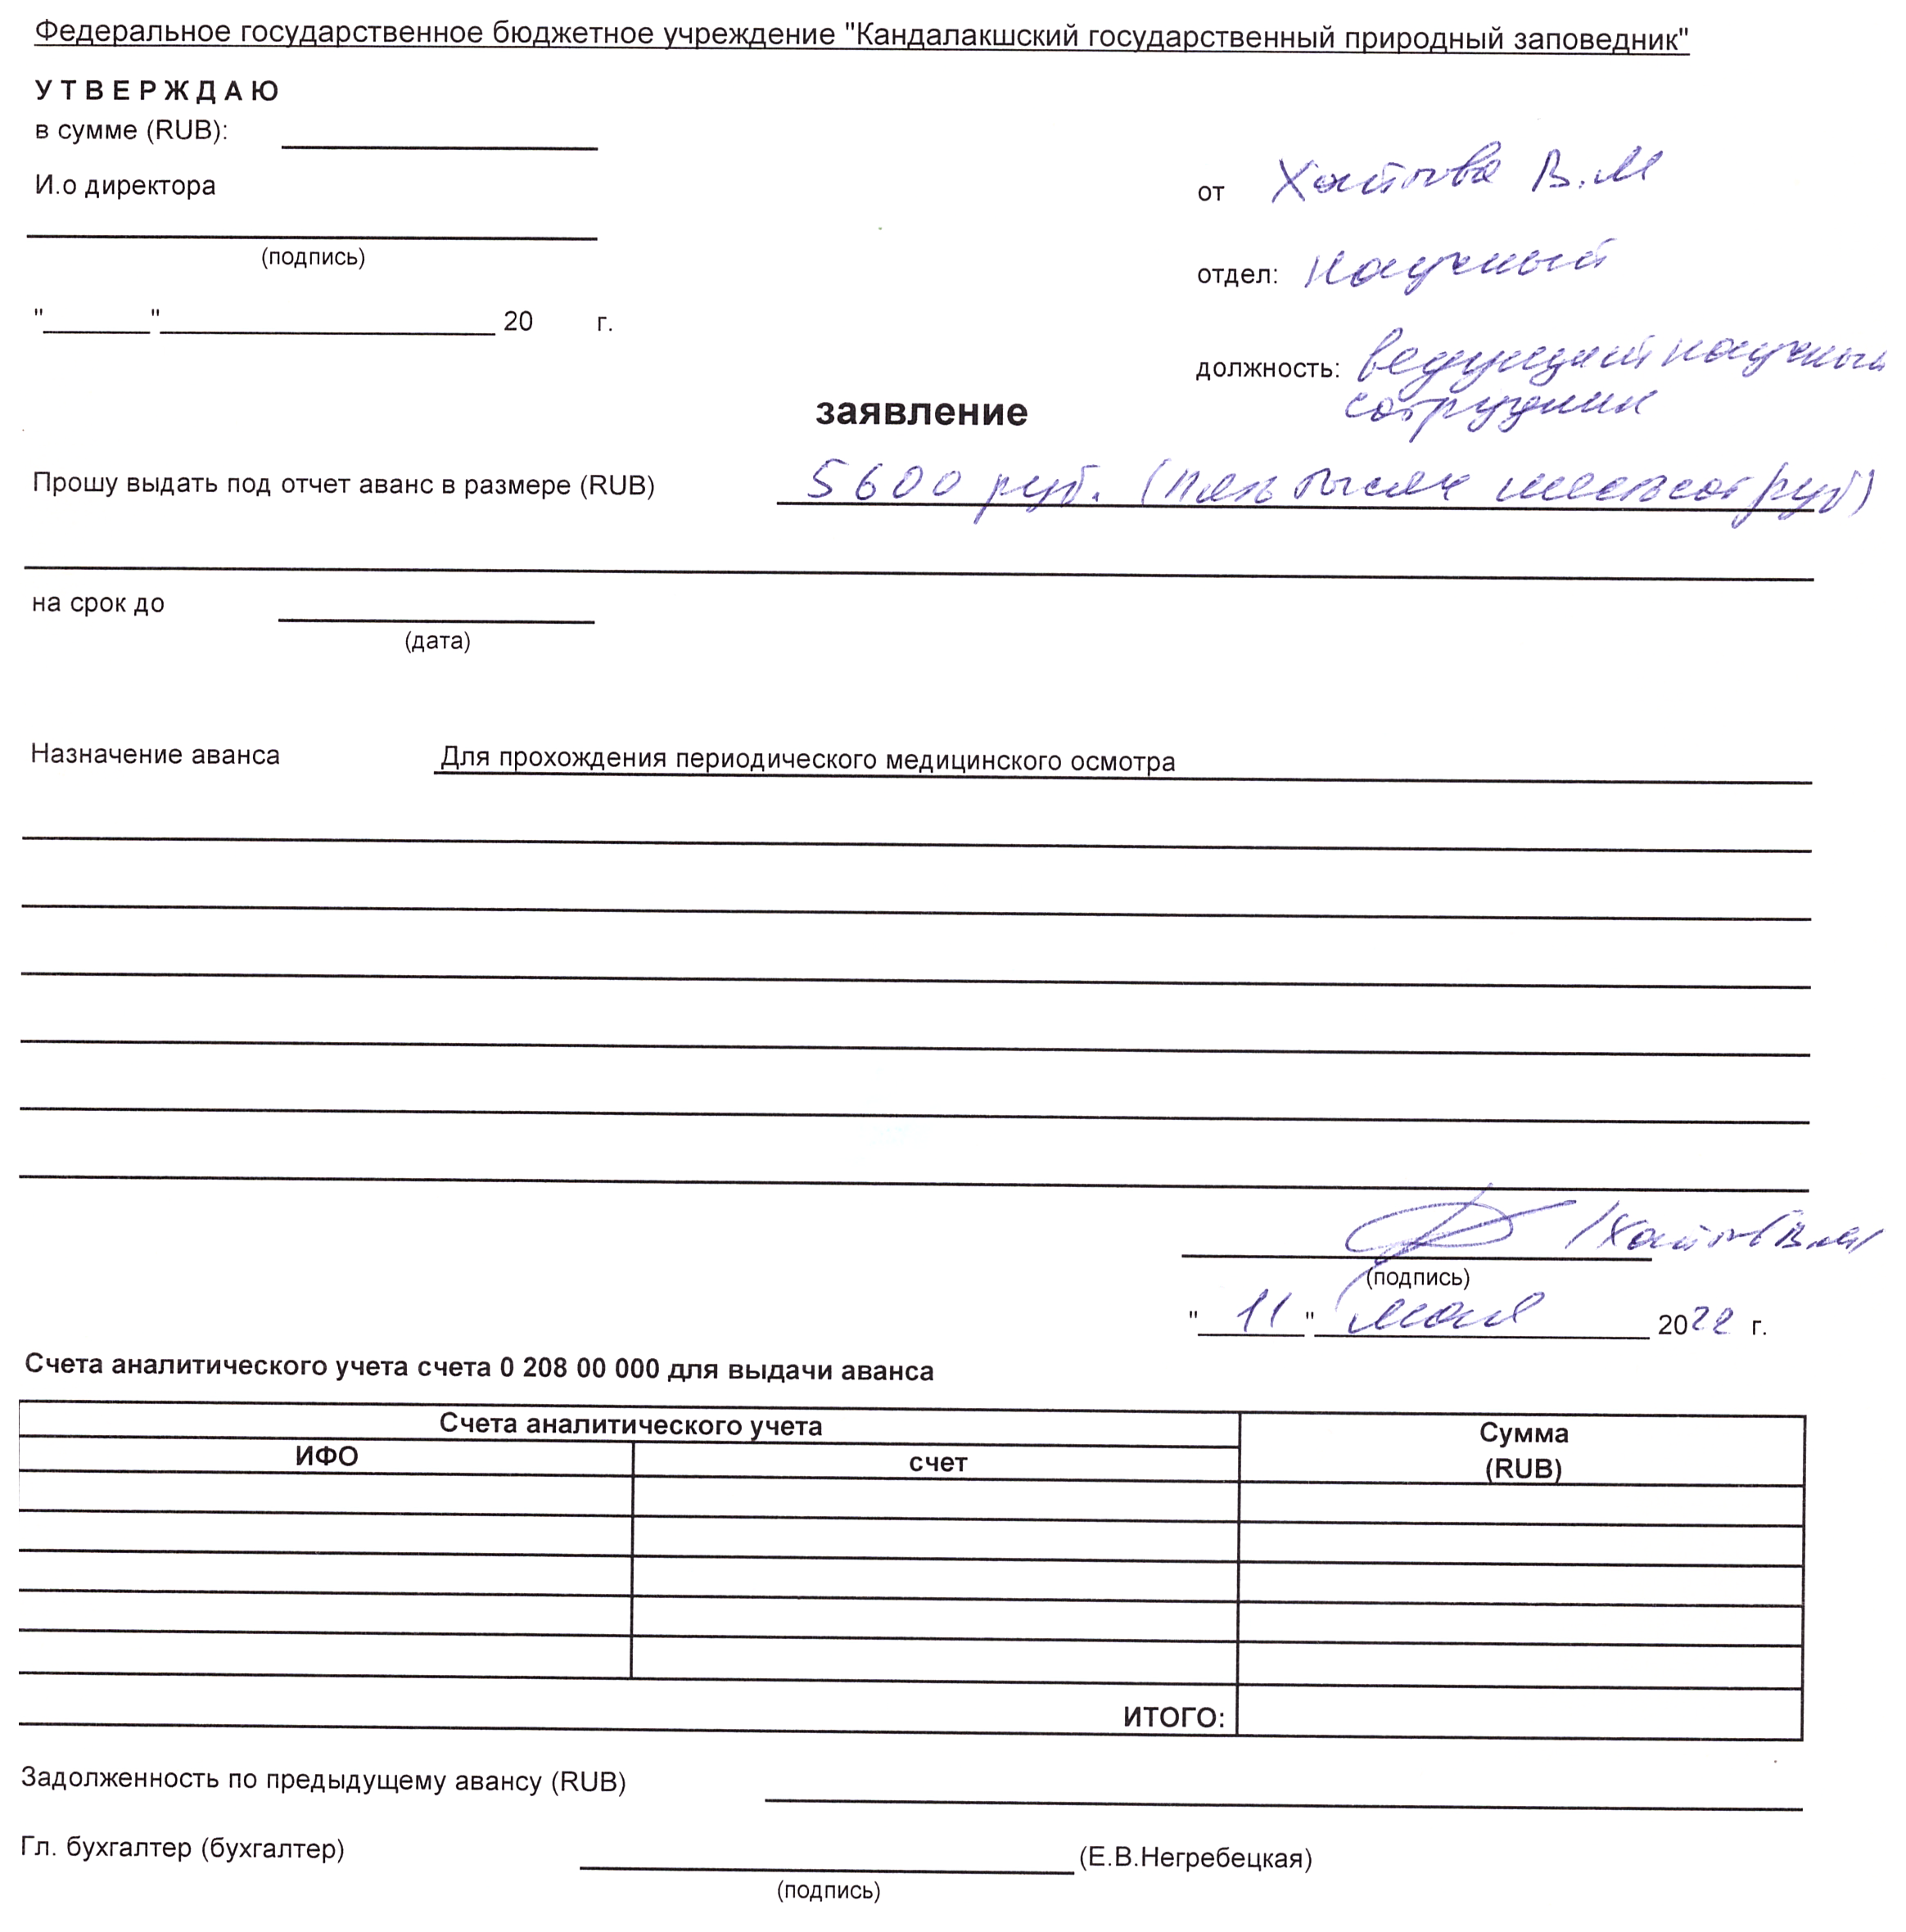 Федеральное государственное бюджетное учреждение "Кандалакшский государственный природный заповедник"
УТВЕРЖДАЮ
в сумме (RUB):
И.о директора
(подпись)
"______"__________________ 20 г.
от Хайтова В.М
отдел: научный
должность: ведущий научный
сотрудник
заявление
Прошу выдать под отчет аванс в размере (RUB) 5600 руб. (пять тысяч шестьсот руб)
на срок до
(дата)
Назначение аванса Для прохождения периодического медицинского осмотра
/Хайтов В.М/
(подпись)
"11" мая 2022 г.
Счета аналитического учета счета 0 208 00 000 для выдачи аванса
Счета аналитического учета Сумма (RUB)
ИФО счет
ИТОГО:
Задолженность по предыдущему авансу (RUB)
Гл. бухгалтер (бухгалтер) (Е.В.Негребецкая)
(подпись)